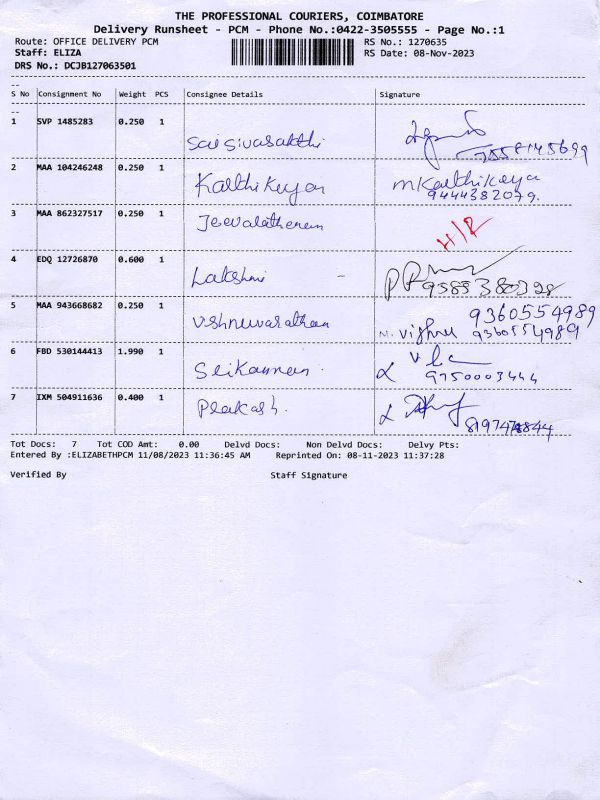 THE PROFESSIONAL COURIERS, COIMBATORE
Delivery Runsheet - PCM - Phone No.:0422-3505555 - Page No.:1
Route: OFFICE DELIVERY PCM RS No.: 1270635
Staff: ELIZA RS Date: 08-Nov-2023
DRS No.: DCJB127063501
S No Consignment No Weight PCS Consignee Details Signature
1 SVP 1485283 0.250 1 Saisivasakthi
7558145699
2 MAA 104246248 0.250 1 Karthikeyan M Karthikeya
9444382079.
3 MAA 862327517 0.250 1 Jeevalathenam H/R
4 EDQ 12726870 0.600 1 Lakshmi - 9585380328
5 MAA 943668682 0.250 1 Vishnuvarathan 9360554989
M. Vishnu 9360554989
6 FBD 530144413 1.990 1 Srikannan.
9750003444
7 IXM 504911636 0.400 1 Prakash.
Tot Docs: 7 Tot COD Amt: 0.00 Delvd Docs: Non Delvd Docs: Delvy Pts:
Entered By :ELIZABETHPCM 11/08/2023 11:36:45 AM Reprinted On: 08-11-2023 11:37:28
Verified By Staff Signature